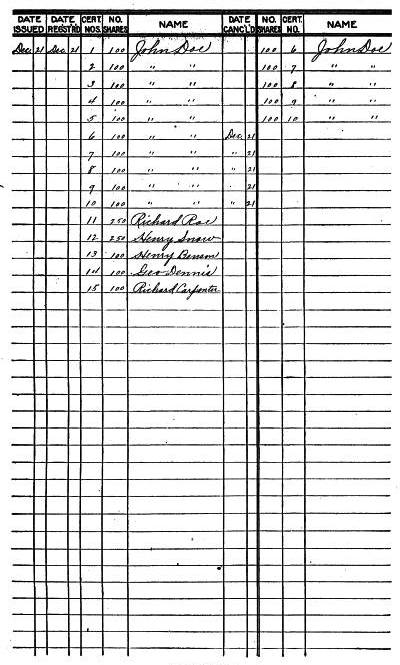 DATE ISSUED DATE REGIST'RD CERT. NOS. NO. SHARES NAME DATE CANC'L'D NO. SHARES CERT. NO. NAME
Dec. 21 Dec. 21 1 100 John Doe 100 6 John Doe
2 100 " " 100 7 " "
3 100 " " 100 8 " "
4 100 " " 100 9 " "
5 100 " " 100 10 " "
6 100 " " Dec. 21
7 100 " " " 21
8 100 " " " 21
9 100 " " " 21
10 100 " " " 21
11 250 Richard Roe
12 250 Henry Snow
13 100 Henry Benson
14 100 Geo Dennis
15 100 Richard Carpenter